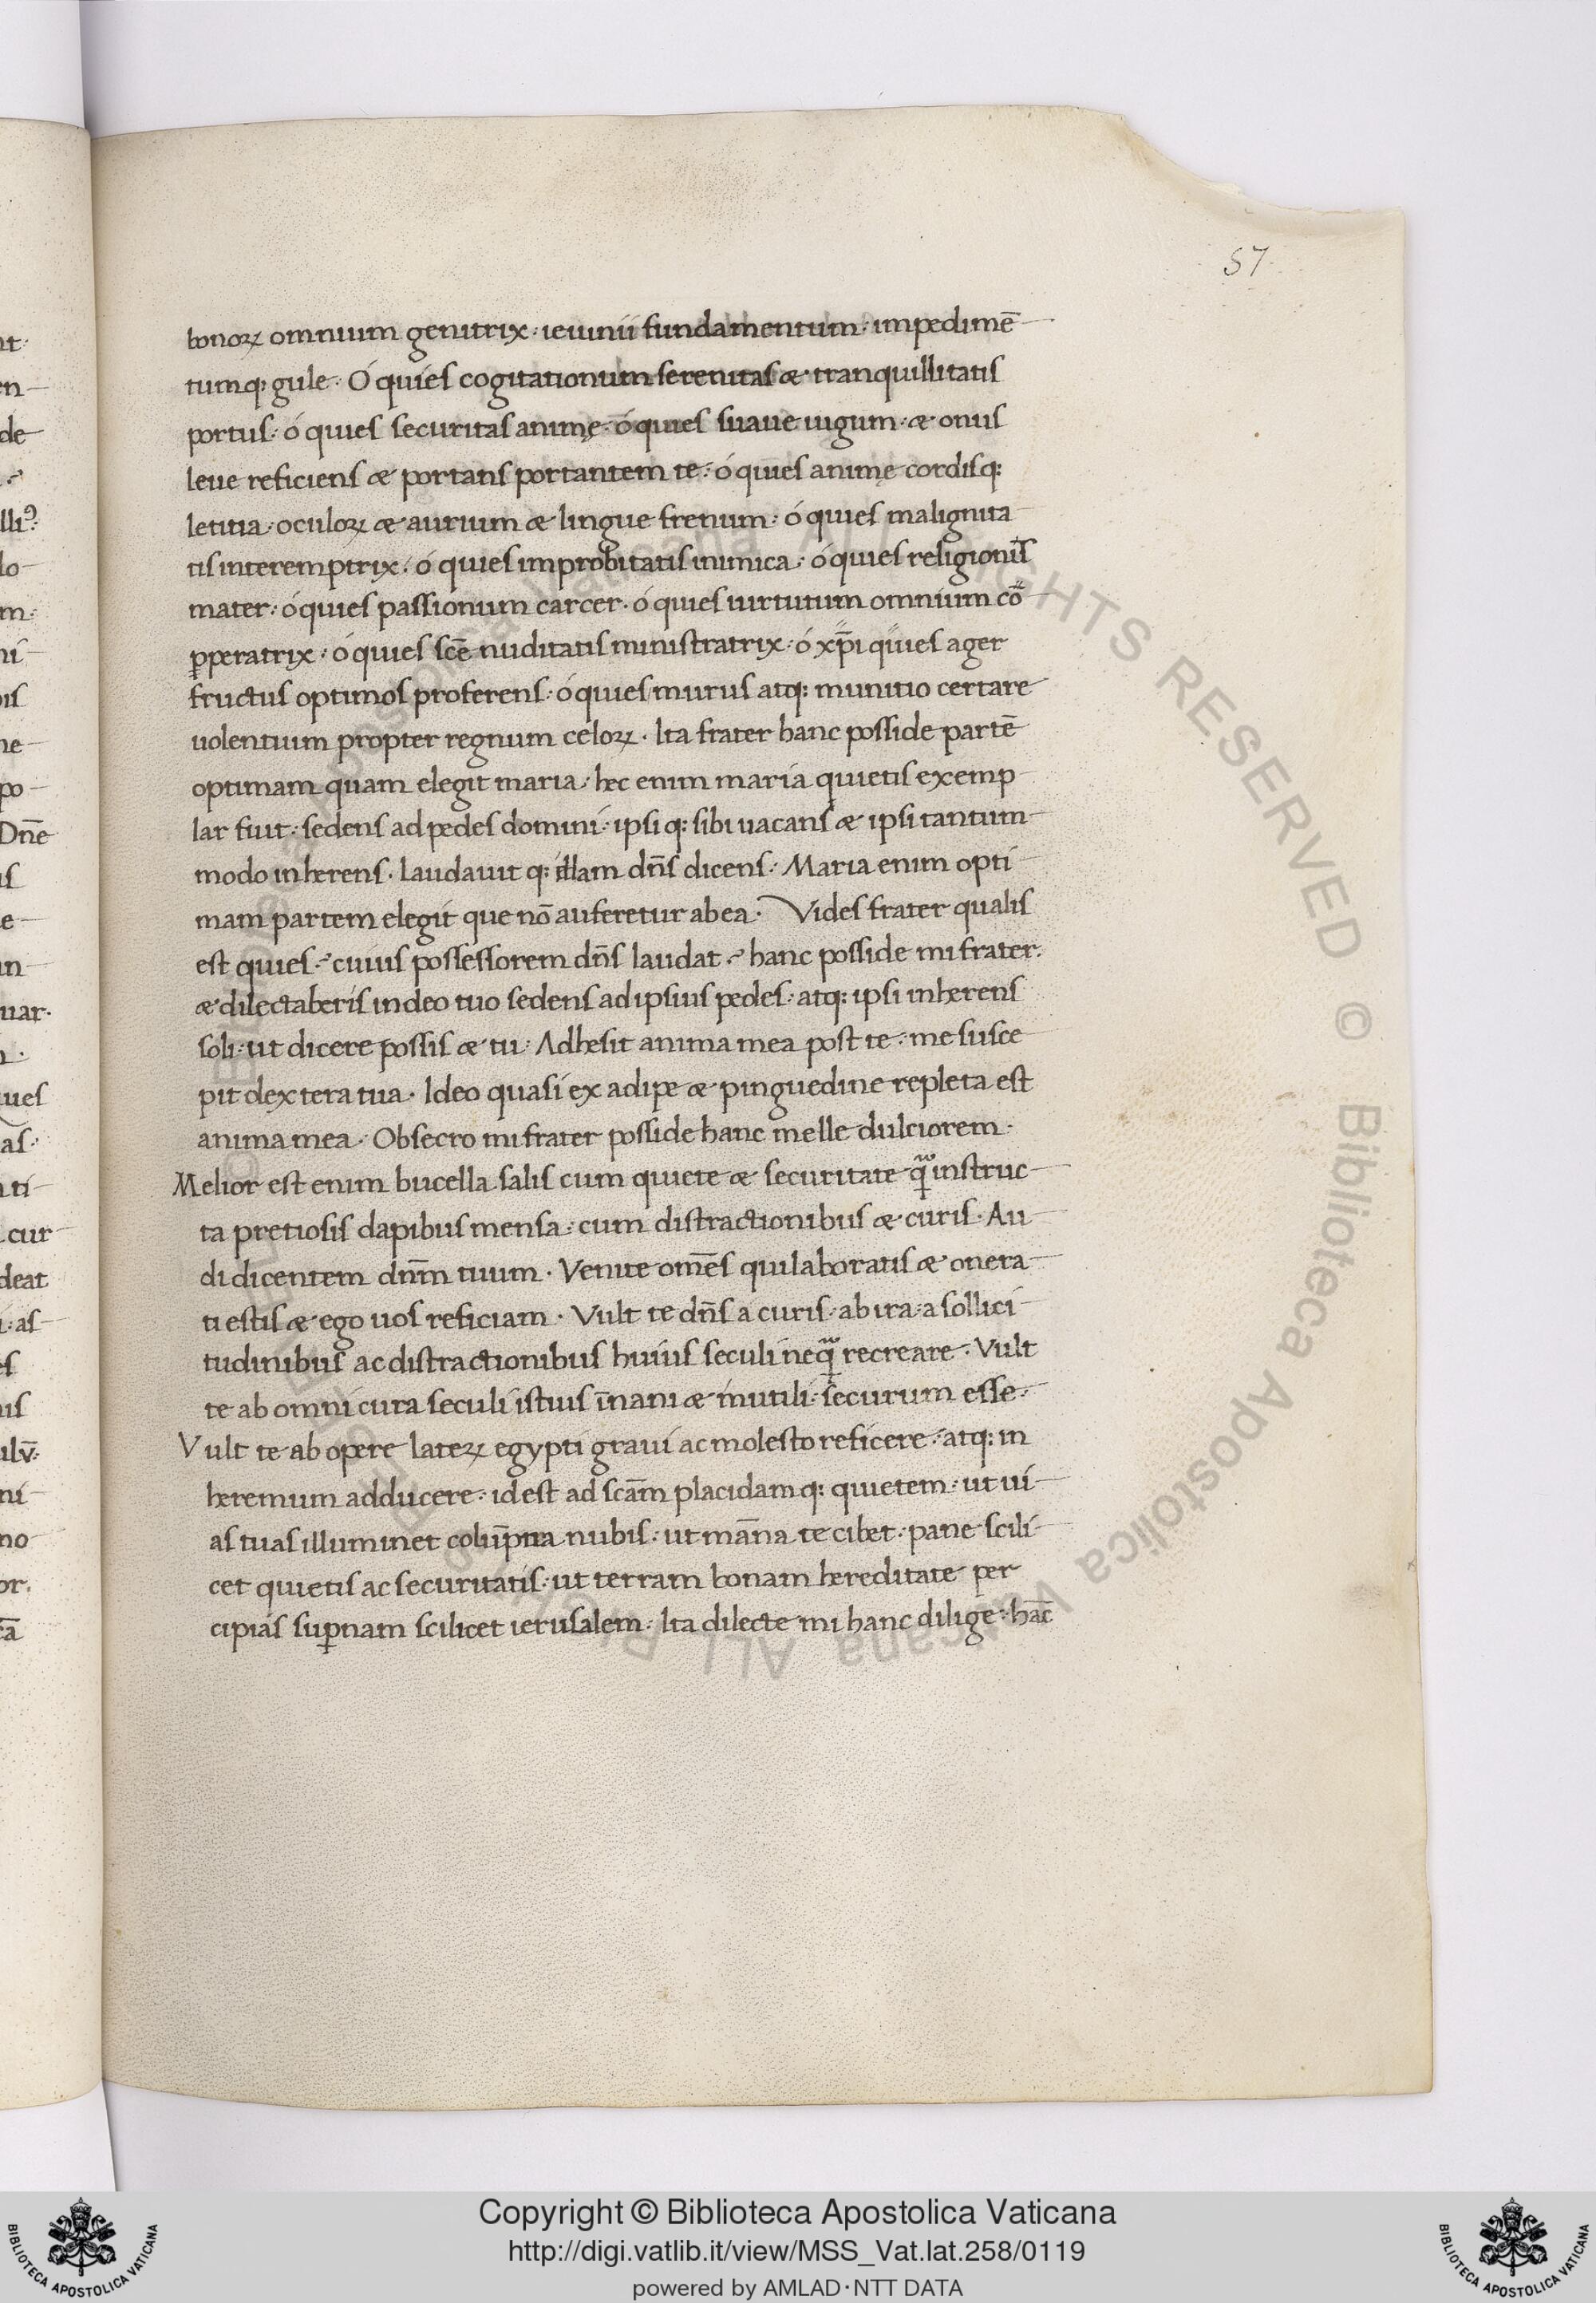 57
bonoꝝ omnium genitrix · ieiunii fundamentum · impedimē
tumq; gule · Ó quies cogitationum serenitas æ tranquillitatis
portus · ó quies securitas animę · ó quies suaue iugum · æ onus
leue reficiens æ portans portantem te · ó quies animę cordisq;
letitia · oculoꝝ æ aurium æ lingue frenum · ó quies malignita
tis interemptrix · ó quies improbitatis inimica · ó quies religionis
mater · ó quies passionum carcer · ó quies uirtutum omnium cō
ꝑperatrix · ó quies scē nuditatis ministratrix · ó xp̄i quies ager
fructus optimos proferens · ó quies murus atq; munitio certare
uolentium propter regnum celoꝝ · Ita frater hanc posside partē
optimam quam elegit maria · hec enim maria quietis exemp
lar fuit · sedens ad pedes domini · ipsi q; sibi uacans æ ipsi tantum
modo inherens · laudauit q; illam dn̄s dicens · Maria enim opti
mam partem elegit que nō auferetur ab ea · Vides frater qualis
est quies · cuius possessorem dn̄s laudat · hanc posside mi frater ·
æ dilectaberis in deo tuo sedens ad ipsius pedes · atq; ipsi inherens
soli · ut dicere possis æ tu · Adhesit anima mea post te · me susce
pit dextera tua · Ideo quasi ex adipe æ pinguedine repleta est
anima mea · Obsecro mi frater posside hanc melle dulciorem ·
Melior est enim bucella salis cum quiete æ securitate qᷓ instruc
ta pretiosis dapibus mensa · cum distractionibus æ curis · Au
di dicentem dnm̄ tuum · Venite om̄es qui laboratis æ onera
ti estis æ ego uos reficiam · Vult te dn̄s a curis · ab ira · a sollici
tudinibus ac distractionibus huius seculi neqᷓ recreare · Vult
te ab omni cura seculi istius īnani æ inutili · securum esse ·
Vult te ab opere lateꝝ egypti graui ac molesto reficere · atq; in
heremum adducere · id est ad scām placidamq; quietem · ut ui
as tuas illuminet colūpna nubis · ut mān̄a te cibet · pane scili
cet quietis ac securitatis · ut terram bonam hereditate per
cipias suꝑnam scilicet ierusalem · Ita dilecte mi hanc dilige · hāc
Copyright © Biblioteca Apostolica Vaticana
http://digi.vatlib.it/view/MSS_Vat.lat.258/0119
powered by AMLAD·NTT DATA